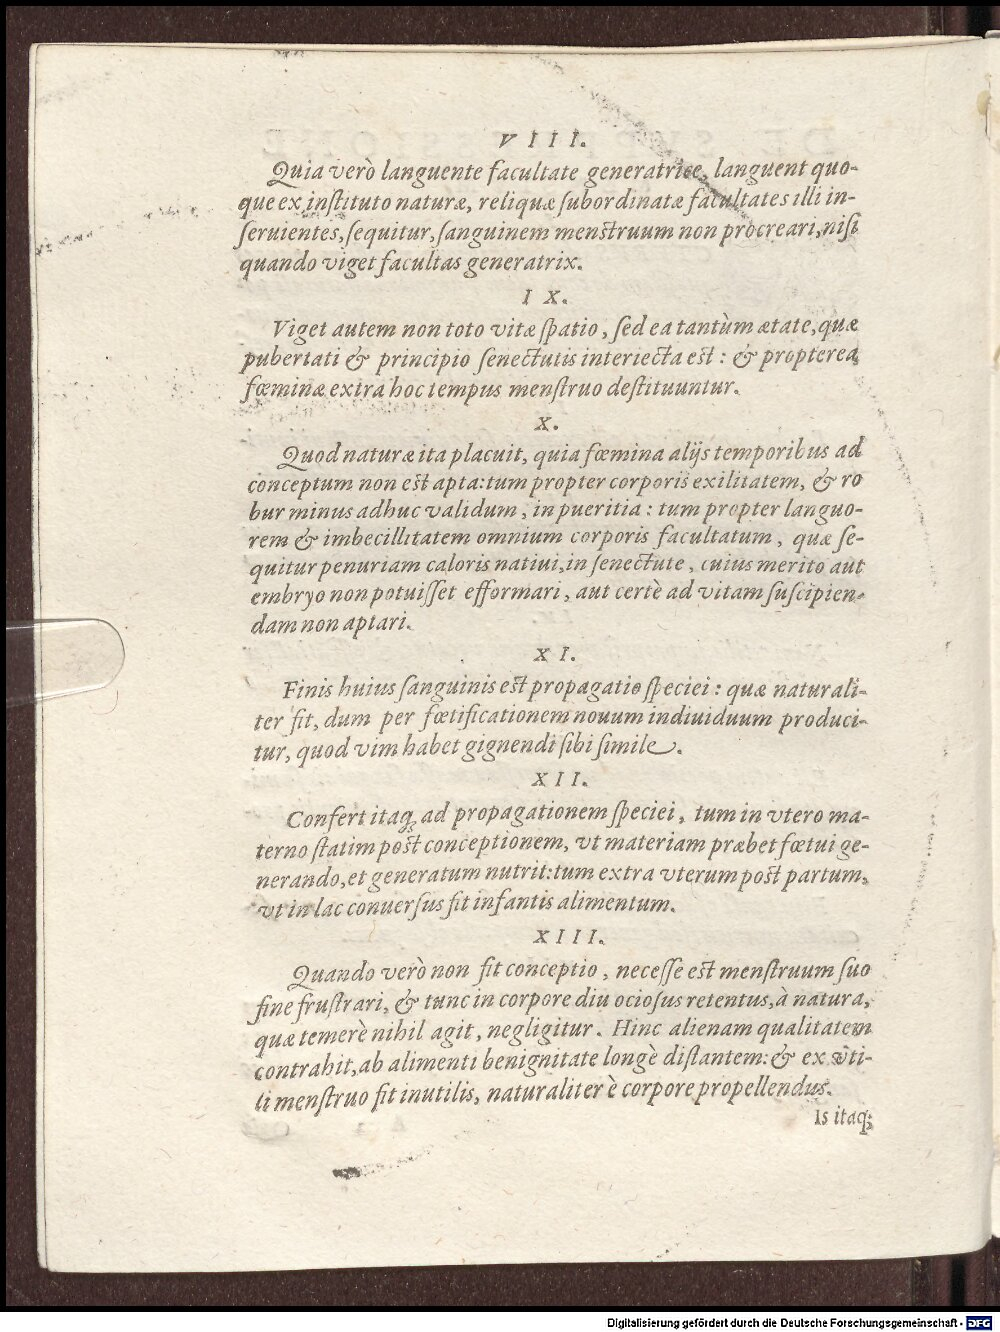 VIII.
Quia verò languente facultate generatrice, languent quo-
que ex instituto naturæ, reliquæ subordinatæ facultates illi in-
seruientes, sequitur, sanguinem menstruum non procreari, nisi
quando viget facultas generatrix.
IX.
Viget autem non toto vitæ spatio, sed ea tantùm ætate, quæ
pubertati & principio senectutis interiecta est: & propterea
fœminæ extra hoc tempus menstruo destituuntur.
X.
Quod naturæ ita placuit, quia fœmina alijs temporibus ad
conceptum non est apta: tum propter corporis exilitatem, & ro
bur minus adhuc validum, in pueritia: tum propter languo-
rem & imbecillitatem omnium corporis facultatum, quæ se-
quitur penuriam caloris natiui, in senectute, cuius merito aut
embryo non potuisset efformari, aut certè ad vitam suscipien-
dam non aptari.
XI.
Finis huius sanguinis est propagatio speciei: quæ naturali-
ter fit, dum per fœtificationem nouum indiuiduum produci-
tur, quod vim habet gignendi sibi simile.
XII.
Confert itaq; ad propagationem speciei, tum in vtero ma-
terno statim post conceptionem, vt materiam præbet fœtui ge-
nerando, et generatum nutrit: tum extra vterum post partum,
vt in lac conuersus fit infantis alimentum.
XIII.
Quando verò non fit conceptio, necesse est menstruum suo
fine frustrari, & tunc in corpore diu ociosus retentus, à natura,
quæ temerè nihil agit, negligitur. Hinc alienam qualitatem
contrahit, ab alimenti benignitate longè distantem: & ex vti-
li menstruo fit inutilis, naturaliter è corpore propellendus.
Is itaq;
Digitalisierung gefördert durch die Deutsche Forschungsgemeinschaft - DFG